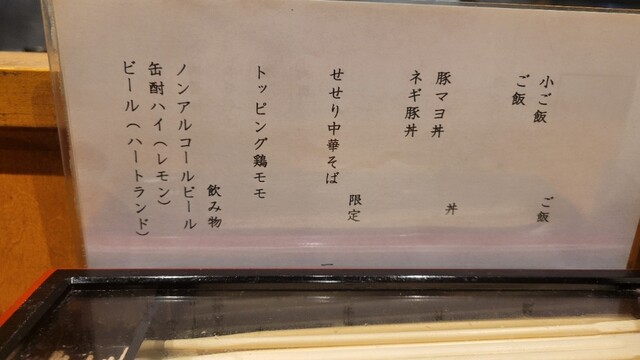 ご飯
小ご飯
ご飯
丼
豚マヨ丼
ネギ豚丼
限定
せせり中華そば
トッピング鶏モモ
飲み物
ノンアルコールビール
缶酎ハイ(レモン)
ビール(ハートランド)